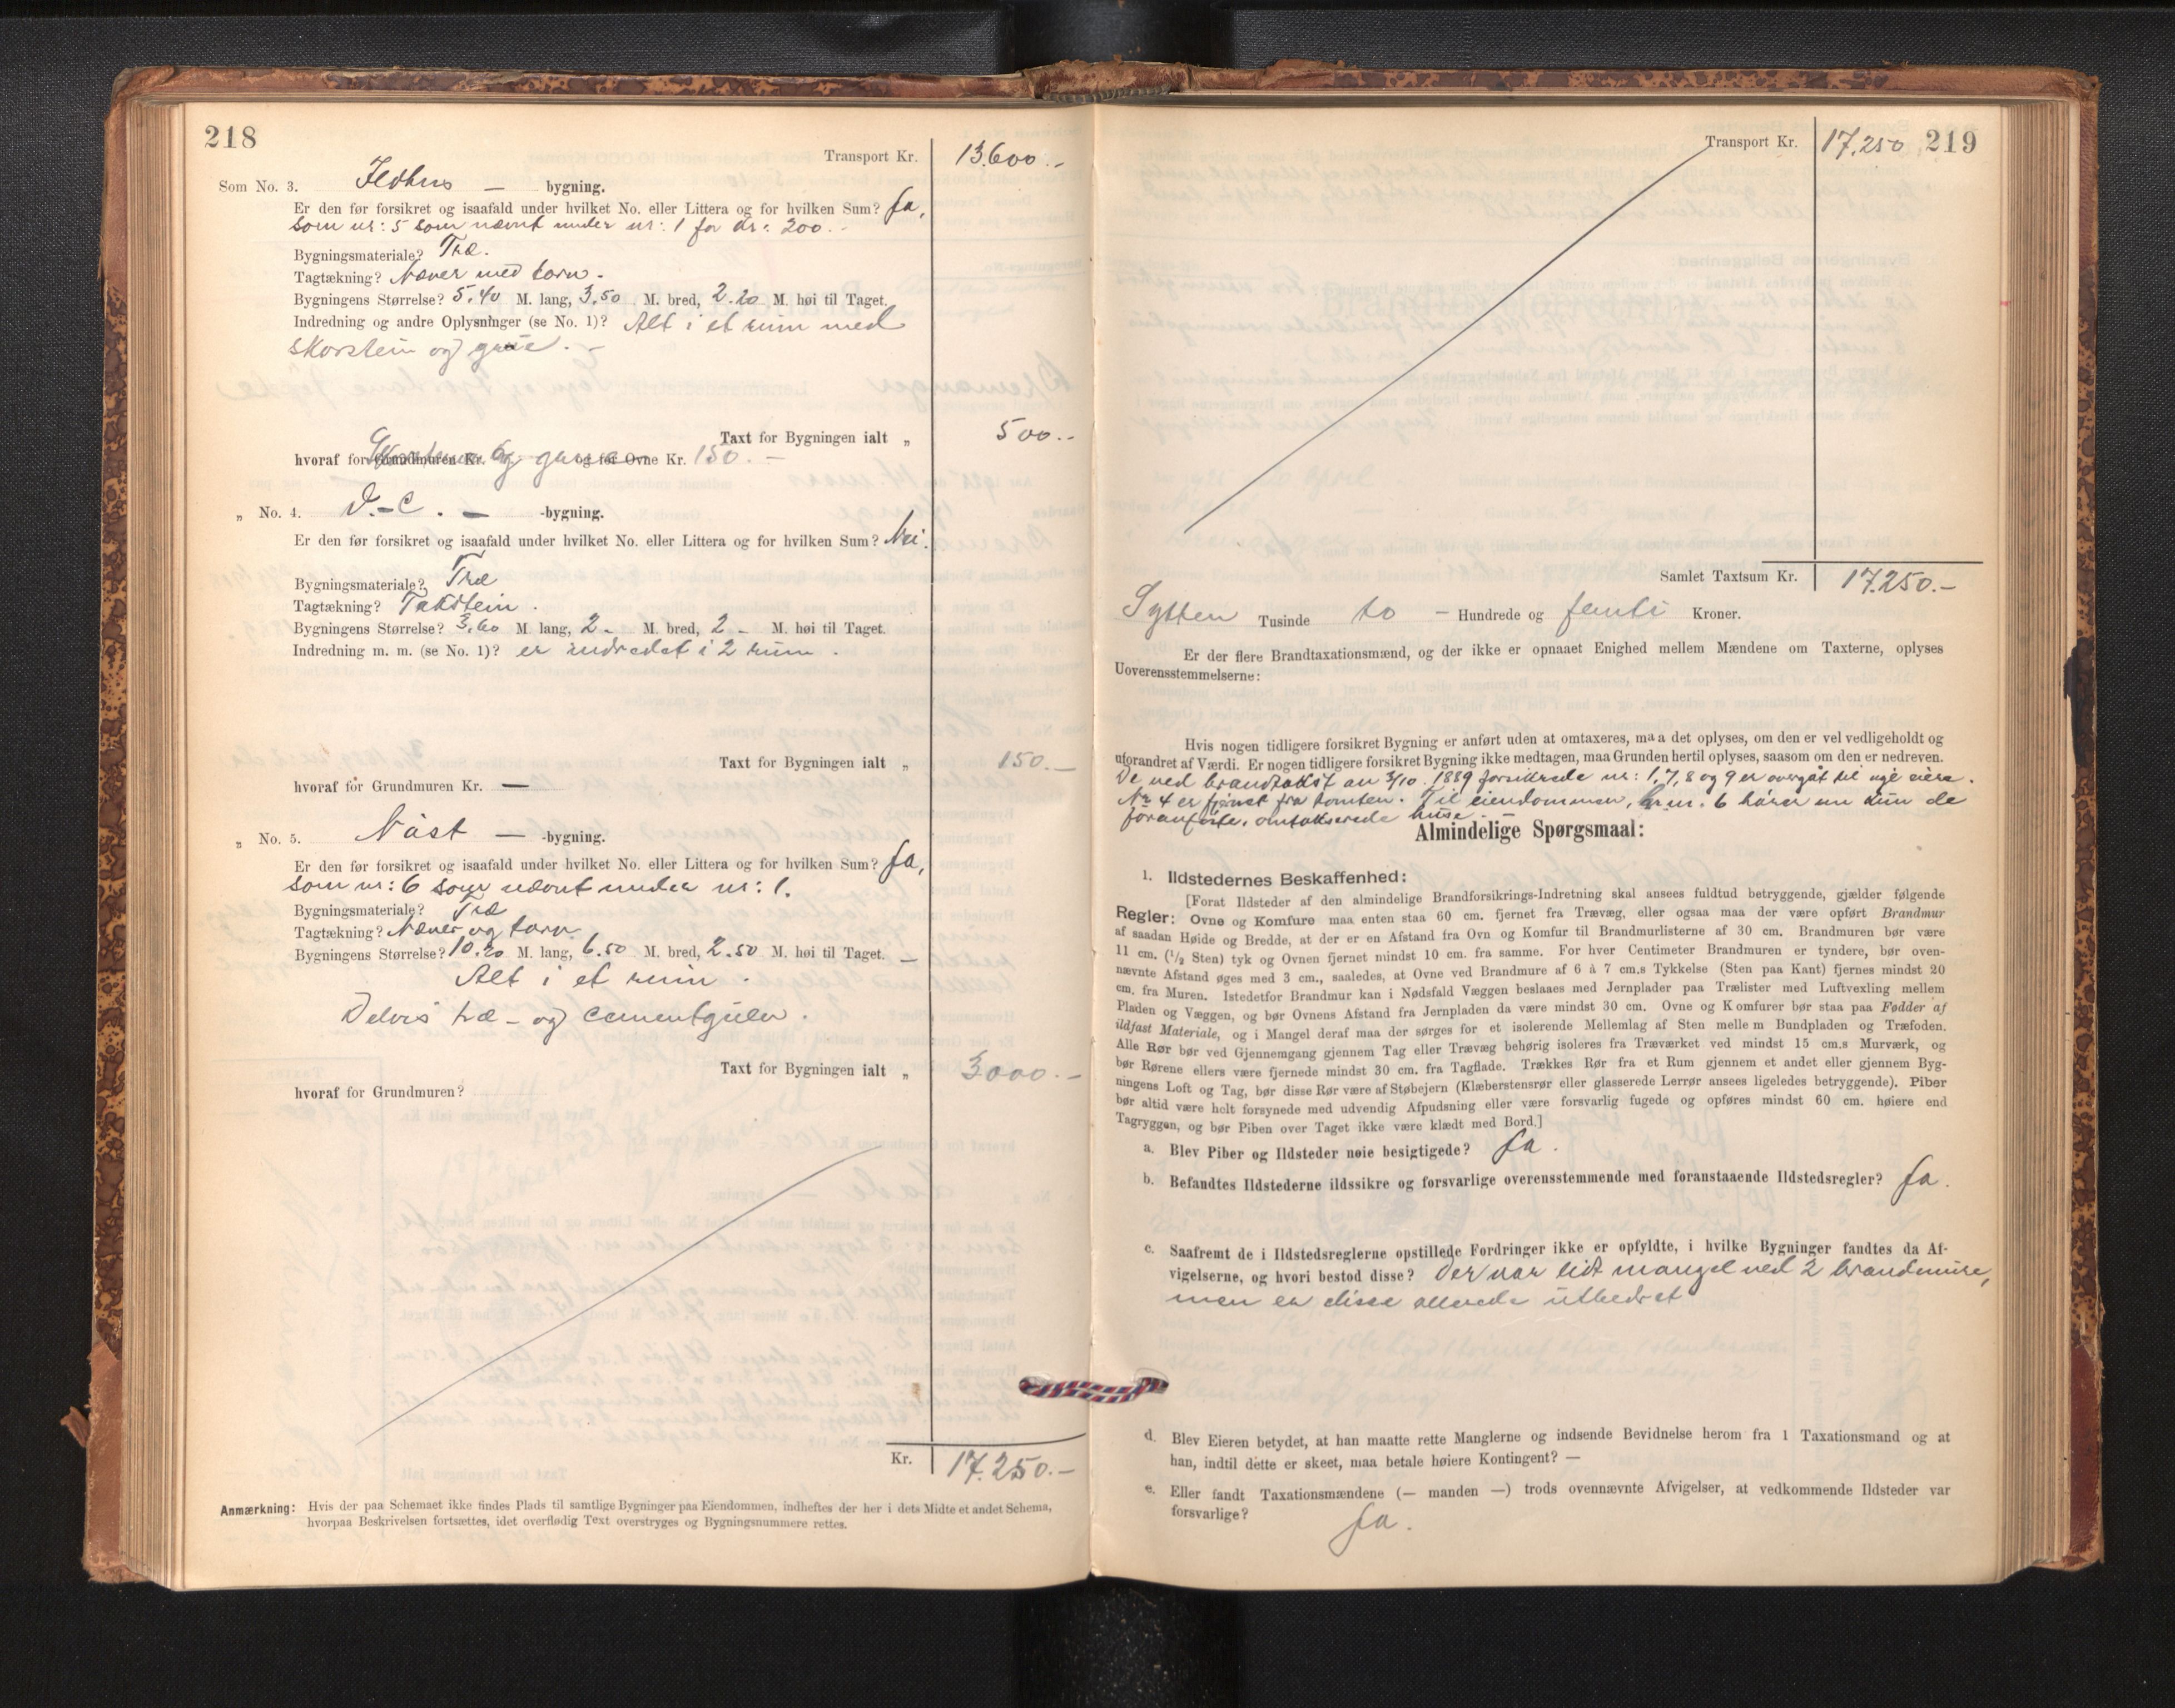 218
Transport Kr. 13.600.-
Som No. 3. Ildhus — bygning.
Er den før forsikret og isaafald under hvilket No. eller Littera og for hvilken Sum? Ja,
som nr: 5 som nævnt under nr: 1 for kr: 200.-
Bygningsmateriale? Træ.
Tagtækning? Næver med torv.
Bygningens Størrelse? 5.40 M. lang, 3.50 M. bred, 2.20 M. høi til Taget.
Indredning og andre Oplysninger (se No. 1)? Alt i et rum med
skorstein og grue. -
Taxt for Bygningen ialt „ 500.-
hvoraf for Grundmuren Kr. og for Ovne Kr. 150.-
„ No. 4. D.-C. — -bygning.
Er den før forsikret og isaafald under hvilket No. eller Littera og for hvilken Sum? Nei.
Bygningsmateriale? Træ
Tagtækning? Takstein.
Bygningens Størrelse? 3.60 M lang, 2 - M. bred, 2 - M. høi til Taget.
Indredning m. m. (se No. 1)? er indredet i 2 rum.
Taxt for Bygningen ialt „ 150.-
hvoraf for Grundmuren Kr. —
„ No. 5. Nåst — -bygning.
Er den før forsikret og isaafald under hvilket No. eller Littera og for hvilken Sum? Ja,
som nr: 6 som nævnt under nr: 1.
Bygningsmateriale? Træ
Tagtækning? Næver og torv
Bygningens Størrelse? 10.20 M. lang, 6.50 M. bred, 2.50 M. høi til Taget. —
Alt i et rum.
Delvis træ- og cementgulv.
Taxt for Bygningen ialt „ 3000.-
hvoraf for Grundmuren?
Kr. 17.250.-
Anmærkning: Hvis der paa Schemaet ikke findes Plads til samtlige Bygninger paa Eiendommen, indheftes der her i dets Midte et andet Schema,
hvorpaa Beskrivelsen fortsættes, idet overflødig Text overstryges og Bygningsnummere rettes.
Transport Kr. 17.250 219
Samlet Taxtsum Kr. 17.250.-
Sytten Tusinde to - Hundrede og femti Kroner.
Er der flere Brandtaxationsmænd, og der ikke er opnaaet Enighed mellem Mændene om Taxterne, oplyses
Uoverensstemmelserne:
Hvis nogen tidligere forsikret Bygning er anført uden at omtaxeres, maa det oplyses, om den er vel vedligeholdt og
uforandret af Værdi. Er nogen tidligere forsikret Bygning ikke medtagen, maa Grunden hertil oplyses, saasom om den er nedreven.
De ved brandtakst av 3/10. 1889 forsikrede nr: 1, 7, 8 og 9 er overgåt til nye eiere.
Nr 4 er fjernet fra tomten. Til eiendommen, br. nr. 6 hører nu kun de
foranførte, omtakserede huse.
Almindelige Spørgsmaal:
1. Ildstedernes Beskaffenhed:
[Forat Ildsteder af den almindelige Brandforsikrings-Indretning skal ansees fuldtud betryggende, gjælder følgende
Regler: Ovne og Komfure maa enten staa 60 cm. fjernet fra Trævæg, eller ogsaa maa der være opført Brandmur
af saadan Høide og Bredde, at der er en Afstand fra Ovn og Komfur til Brandmurlisterne af 30 cm. Brandmuren bør være
11 cm. (1/2 Sten) tyk og Ovnen fjernet mindst 10 cm. fra samme. For hver Centimeter Brandmuren er tyndere, bør oven-
nævnte Afstand øges med 3 cm., saaledes, at Ovne ved Brandmure af 6 à 7 cm.s Tykkelse (Sten paa Kant) fjernes mindst 20
cm. fra Muren. Istedetfor Brandmur kan i Nødsfald Væggen beslaaes med Jernplader paa Trælister med Luftvexling mellem
Pladen og Væggen, og bør Ovnens Afstand fra Jernpladen da være mindst 30 cm. Ovne og Komfurer bør staa paa Fødder af
ildfast Materiale, og i Mangel deraf maa der sørges for et isolerende Mellemlag af Sten mellem Bundpladen og Træfoden.
Alle Rør bør ved Gjennemgang gjennem Tag eller Trævæg behørig isoleres fra Træværket ved mindst 15 cm.s Murværk, og
bør Rørene ellers være fjernede mindst 30 cm. fra Tagflade. Trækkes Rør fra et Rum gjennem et andet eller gjennem Byg-
ningens Loft og Tag, bør disse Rør være af Støbejern (Klæberstensrør eller glasserede Lerrør ansees ligeledes betryggende). Piber
bør altid være helt forsynede med udvendig Afpudsning eller være forsvarlig fugede og opføres mindst 60 cm. høiere end
Tagryggen, og bør Piben over Taget ikke være klædt med Bord.]
a. Blev Piber og Ildsteder nøie besigtigede? Ja.
b. Befandtes Ildstederne ildssikre og forsvarlige overensstemmende med foranstaaende Ildstedsregler? Ja.
c. Saafremt de i Ildstedsreglerne opstillede Fordringer ikke er opfyldte, i hvilke Bygninger fandtes da Af-
vigelserne, og hvori bestod disse? Der var lidt mangel ved 2 brandmure,
men er disse allerede utbedret
d. Blev Eieren betydet, at han maatte rette Manglerne og indsende Bevidnelse herom fra 1 Taxationsmand og at
han, indtil dette er skeet, maa betale høiere Kontingent? —
e. Eller fandt Taxationsmændene (— manden —) trods ovennævnte Afvigelser, at vedkommende Ildsteder var
forsvarlige? Ja.